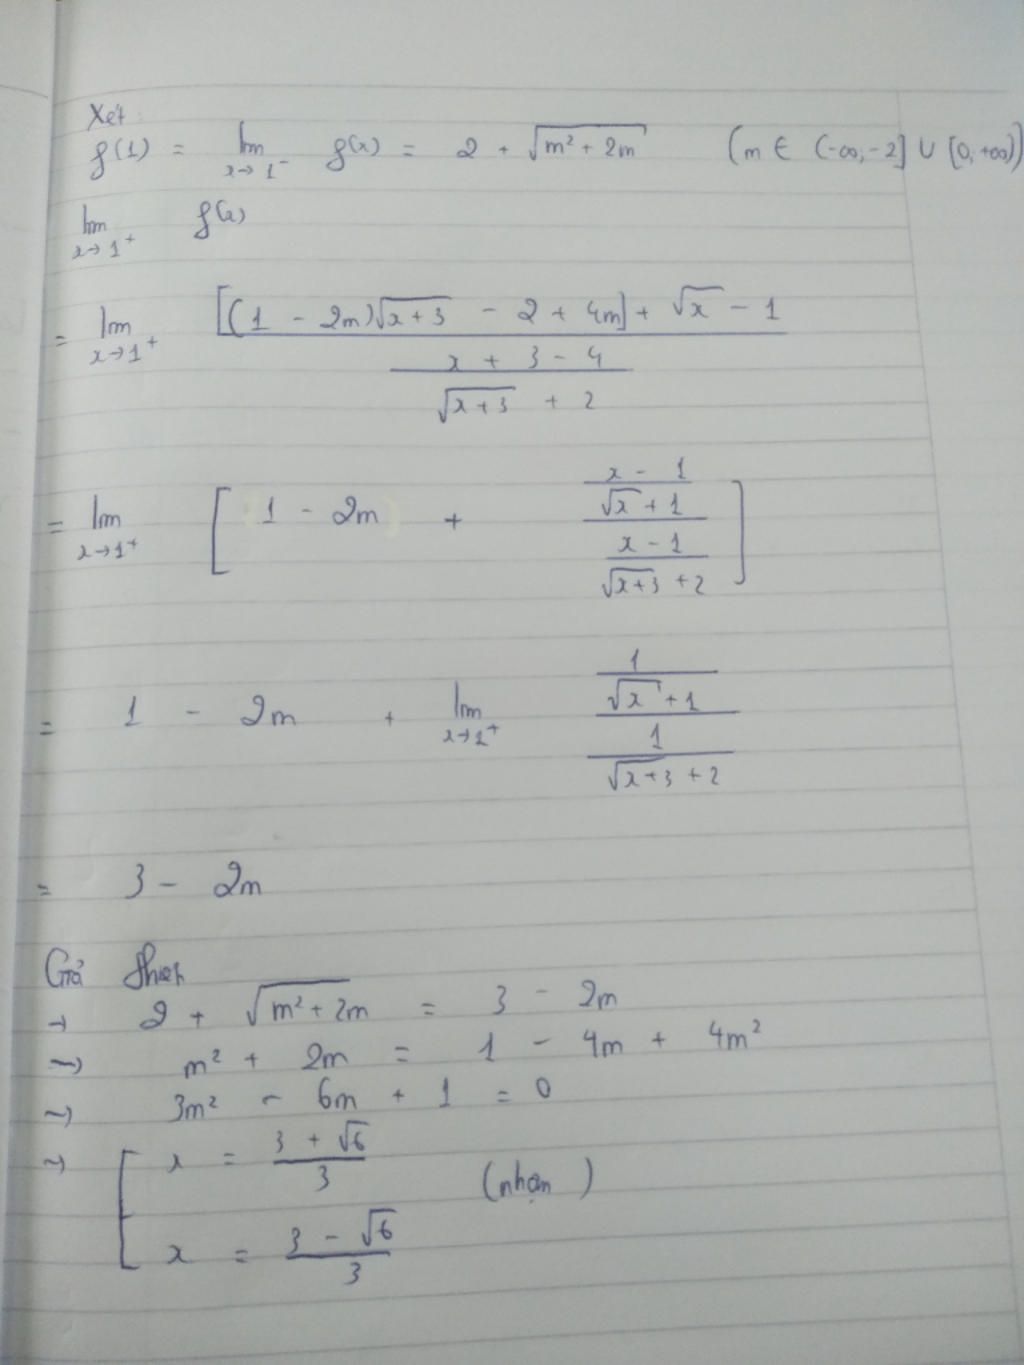 Xét:
f(1) = lim x→1⁻ f(x) = 2 + √(m² + 2m) (m ∈ (-∞, -2] ∪ [0, +∞))
lim x→1⁺ f(x)
= lim x→1⁺ ([(1 - 2m)√(x+3) - 2 + 4m] + √x - 1) / ((x + 3 - 4) / (√(x+3) + 2))
= lim x→1⁺ [1 - 2m + ((x - 1) / (√x + 1)) / ((x - 1) / (√(x+3) + 2))]
= 1 - 2m + lim x→1⁺ (1 / (√x + 1)) / (1 / (√(x+3) + 2))
= 3 - 2m
Giả thiết
→ 2 + √(m² + 2m) = 3 - 2m
→ m² + 2m = 1 - 4m + 4m²
→ 3m² - 6m + 1 = 0
→ [ x = (3 + √6) / 3
(nhận)
x = (3 - √6) / 3